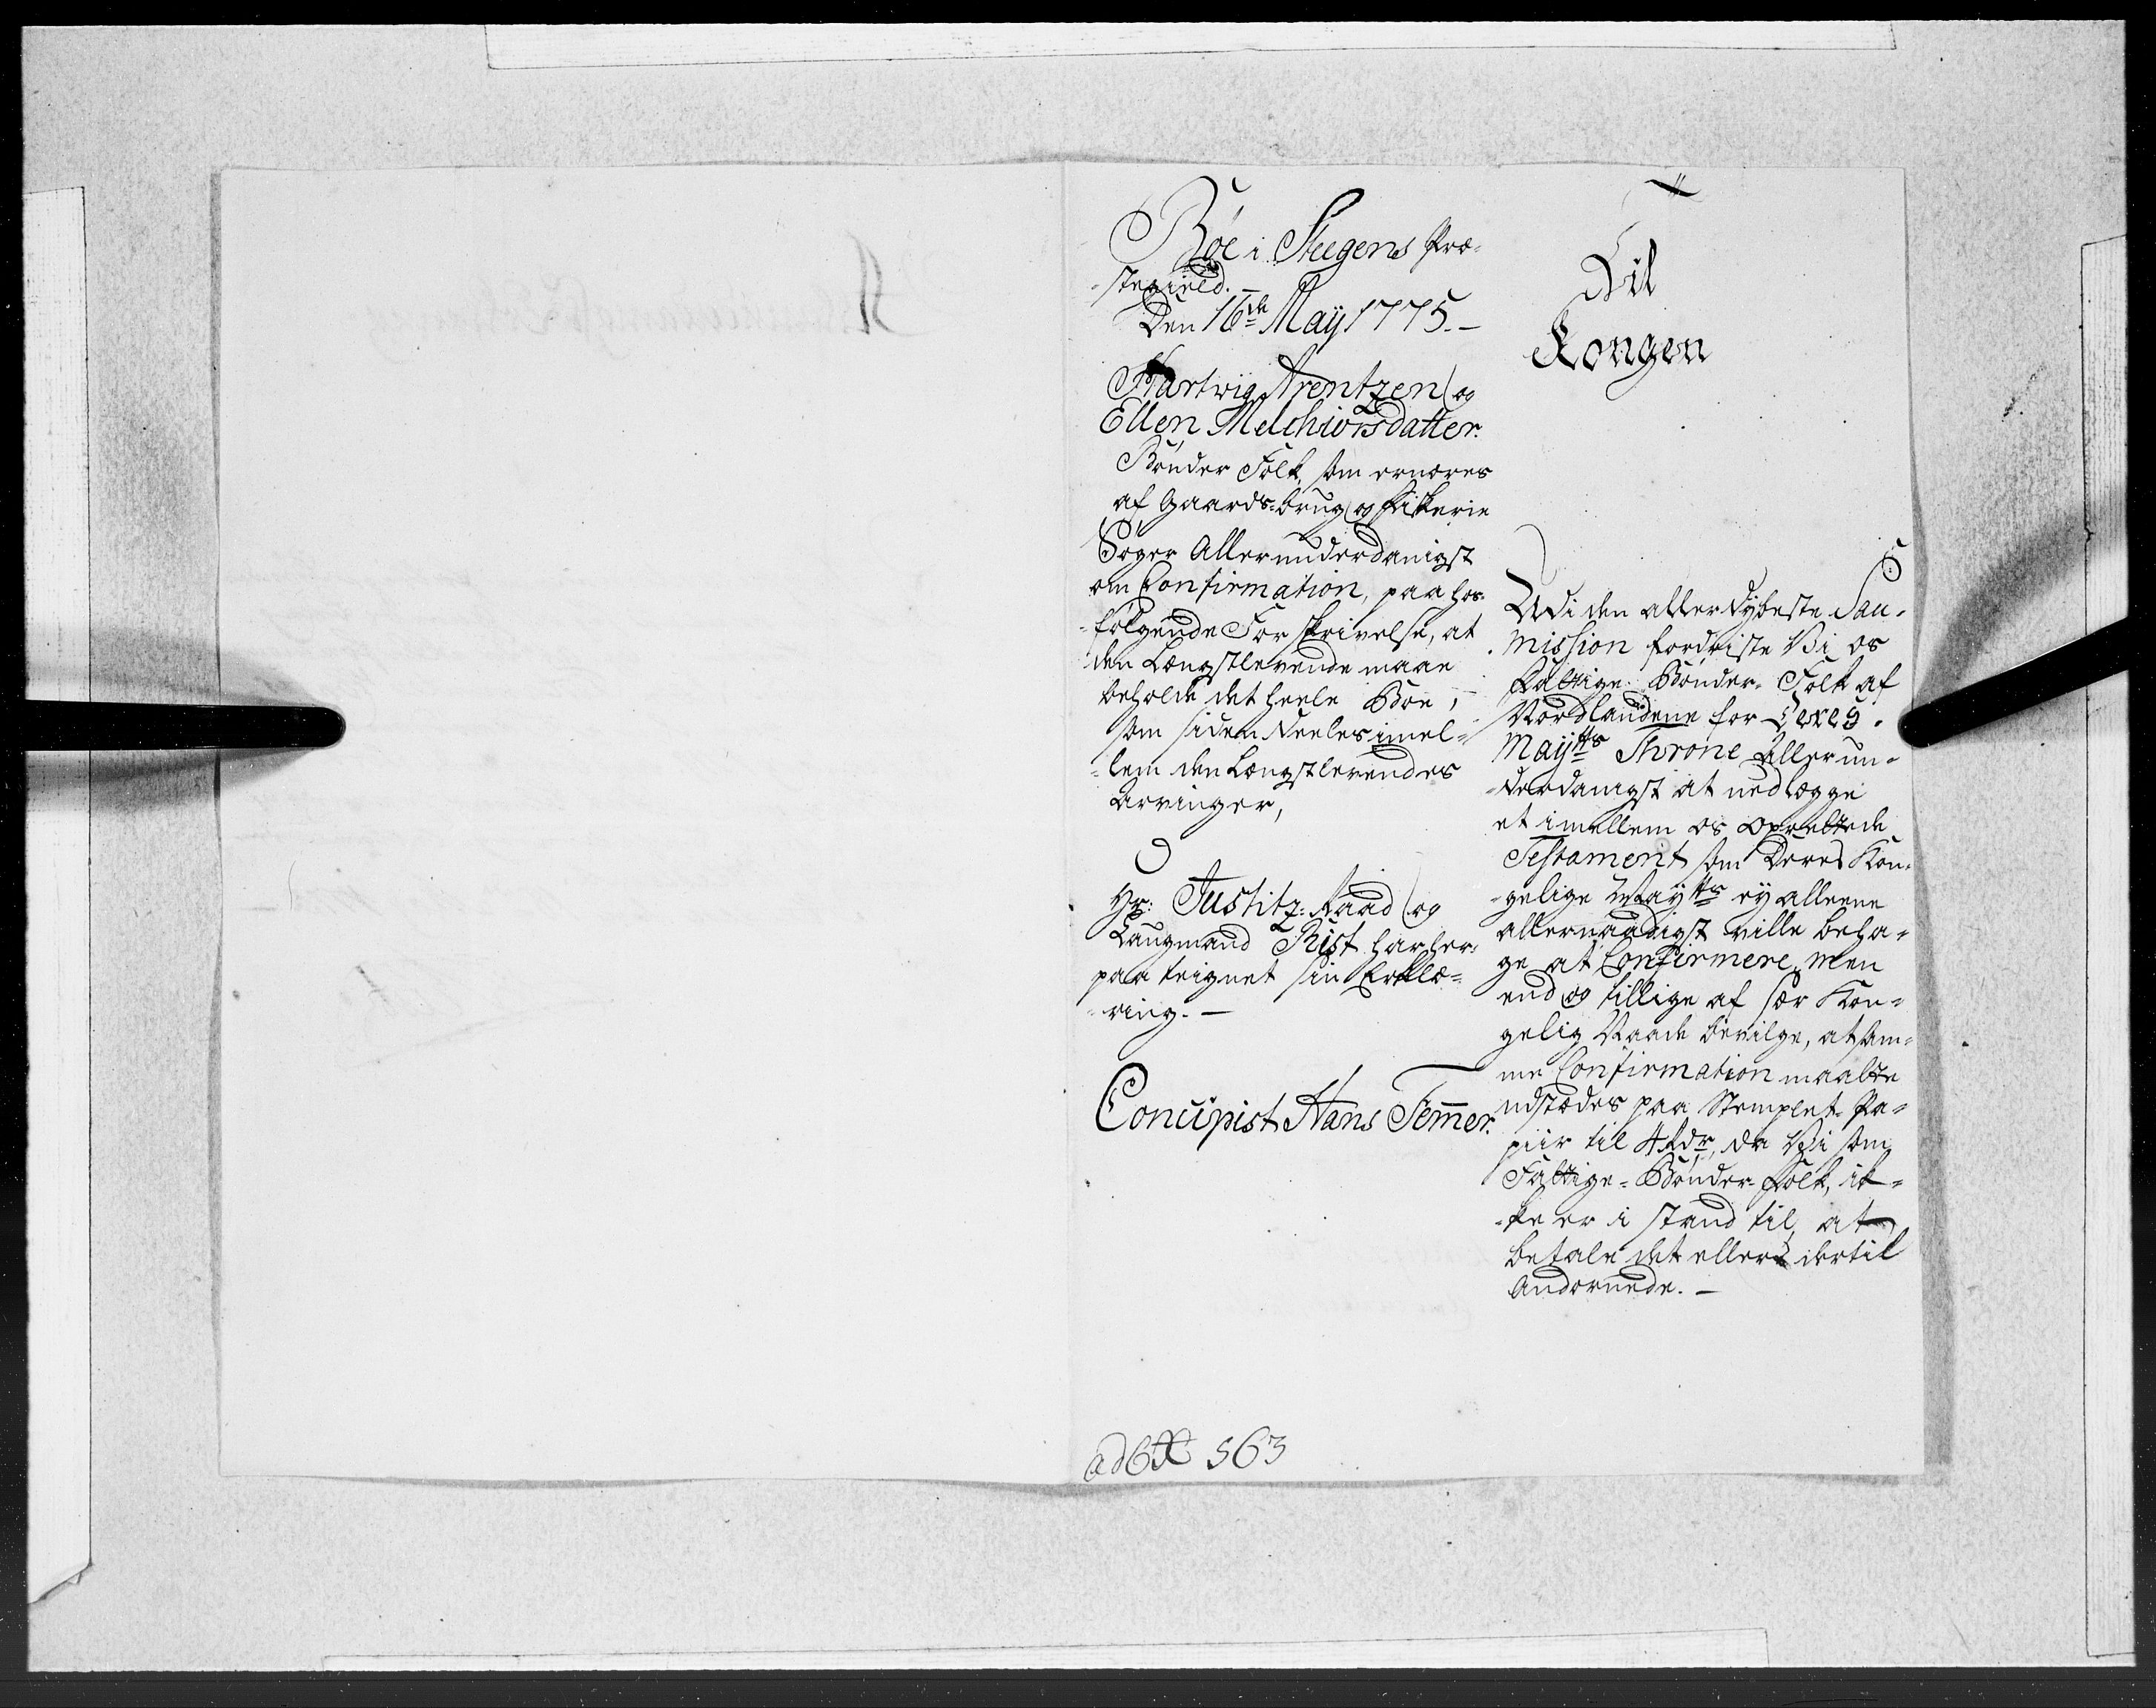 Böe i Steegens Præ-
-stegield. -
Den 16de Maÿ 1775. -
Hartvig Arentzen og
Ellen Melchiorsdatter.
Bönder Folk, som ernæres
af Gaards-brug og fiskerie
Söger Allerunderdanigst
om Confirmation, paa hos-
-fölgende Forskrivelse, at
den Længstlevende maae
beholde det heele Boe,
som siden deeles imel-
-lem den Længstlevendes
Arvinger,
Hr: Justitz-Raad og
Laugmand Rist har her
paa teignet sin Erklæ-
-ring. -
Concipist Hans Femmer.
ad 563
Til
Kongen
Udi den allerdybeste Sou-
mission fordriste Vi os
fattige Bönder-Folk af
Nordlandene for Deres
Mayts Throne Allerun-
-derdanigst at nedlægge
et imellem os oprettede
Testament som Deres Kon-
-gelige Mayts ey alleene
allernaadigst ville beha-
ge at Confirmere, men
end og tillige af sær Kon-
gelig Naade bevilge, at sam-
me Confirmation maatte
udstædes paa Stemplet-Pa-
piir til 4 Rdr, da Vi som
Fattige-Bönder-folk, ik-
-ke er i stand til, at
betale det ellers dertil
Andornede. -